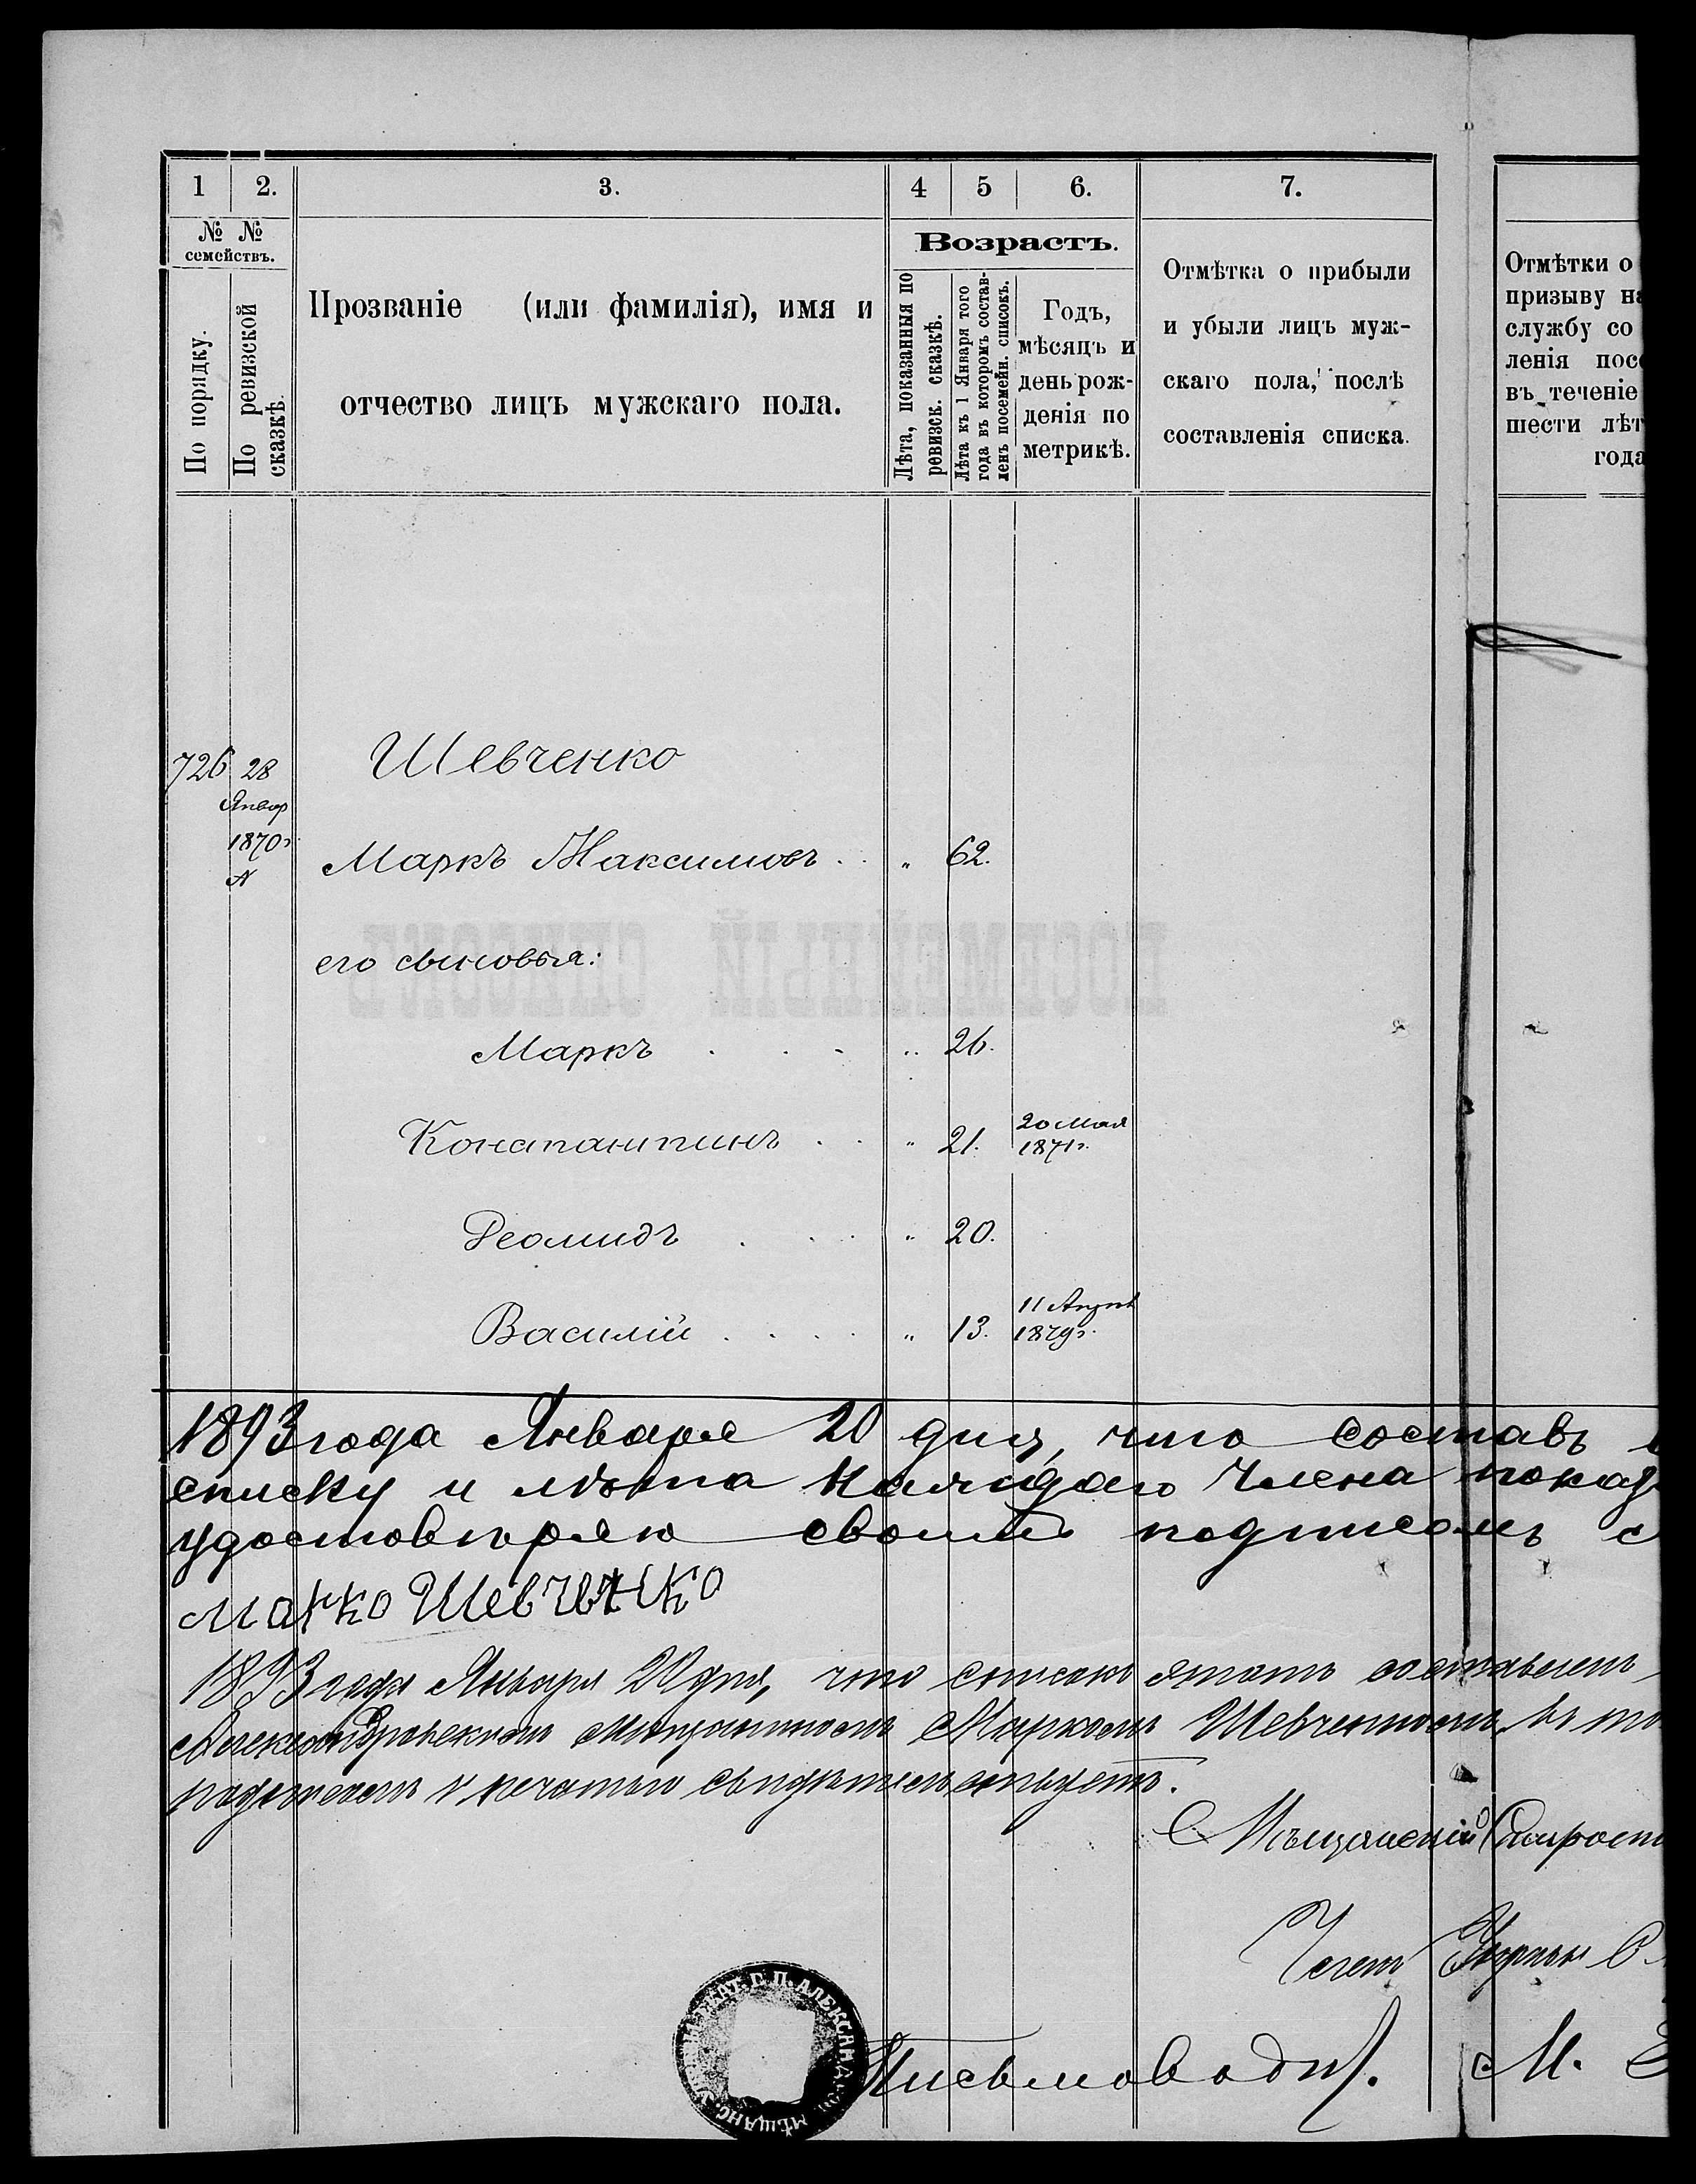 1 2. 3. 4 5 6. 7.
№ № семействъ.
По порядку.
По ревизской сказкѣ.
Прозваніе (или фамилія), имя и
отчество лицъ мужскаго пола.
Возрастъ.
Лѣта, показанныя по
ревизск. сказкѣ.
Лѣта къ 1 Января того
года въ которомъ состав-
ленъ посемейн. списокъ.
Годъ,
мѣсяцъ и
день рож-
денія по
метрикѣ.
Отмѣтка о прибыли
и убыли лицъ муж-
скаго пола, послѣ
составленія списка.
Отмѣтки о
призыву на
службу со
ленія посе
въ теченіе
шести лѣт
года
726 28 Шевченко
Январ
1870 г.
№
Маркъ Максимовъ . . „ 62.
его сыновья:
Маркъ . . . „ 26.
Константинъ . . „ 21. 20 Мая
1871 г.
Деомидъ . . . „ 20.
Василій . . . . „ 13. 11 Апрѣл
1879 г.
ПОСЕМЕЙНЫЙ СПИСОКЪ
1893 года Января 20 дня, что составъ
списку и лѣта каждаго члена показ
удостовѣряю своимъ подписомъ
Марко Шевченко
1893 года Января 20 дня, что списокъ этотъ составленъ
Александровскимъ мѣщаниномъ Маркомъ Шевченкомъ, въ то
подписомъ и печатью свидѣтельствуетъ.
Мѣщанскій Старост
Член Управы
Письмовод. М.
Г. П. АЛЕКСАНД МѢЩАНС.